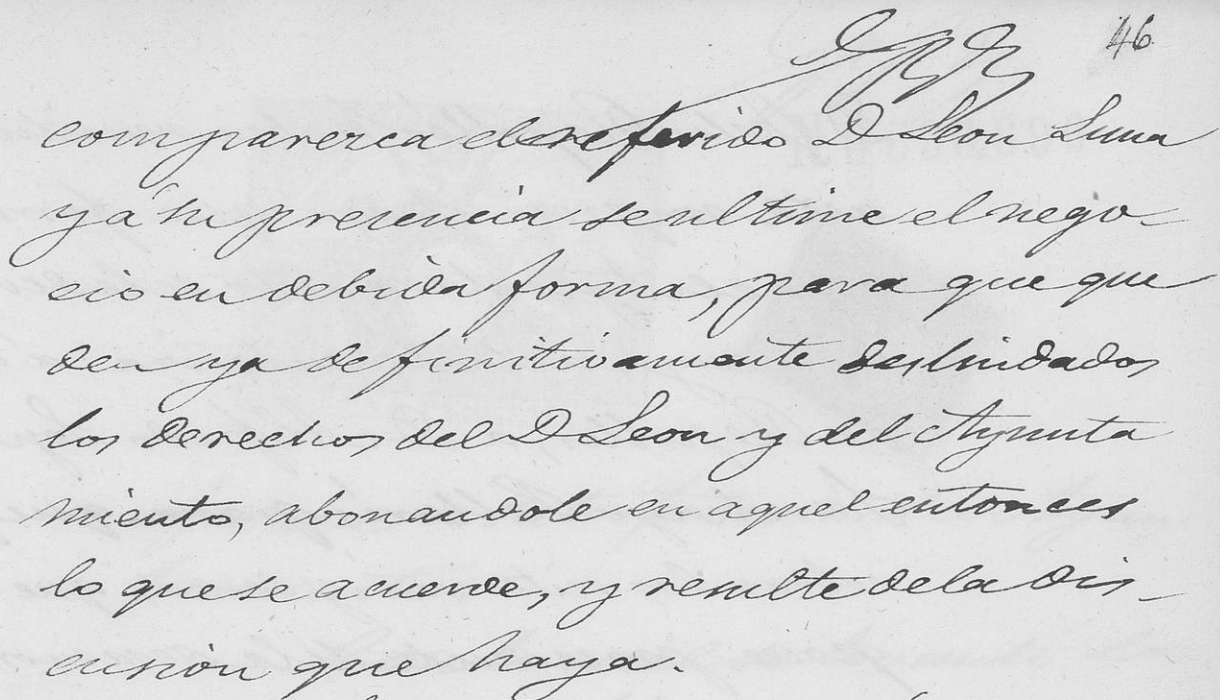 46
comparezca el referido D Leon Luna
y á su presencia se ultime el nego-
cio en debida forma, para que que
den ya definitivamente deslindados
los derechos del D Leon y del Ayunta
miento, abonandole en aquel entonces
lo que se acuerde, y resulte de la dis-
cusion que haya.